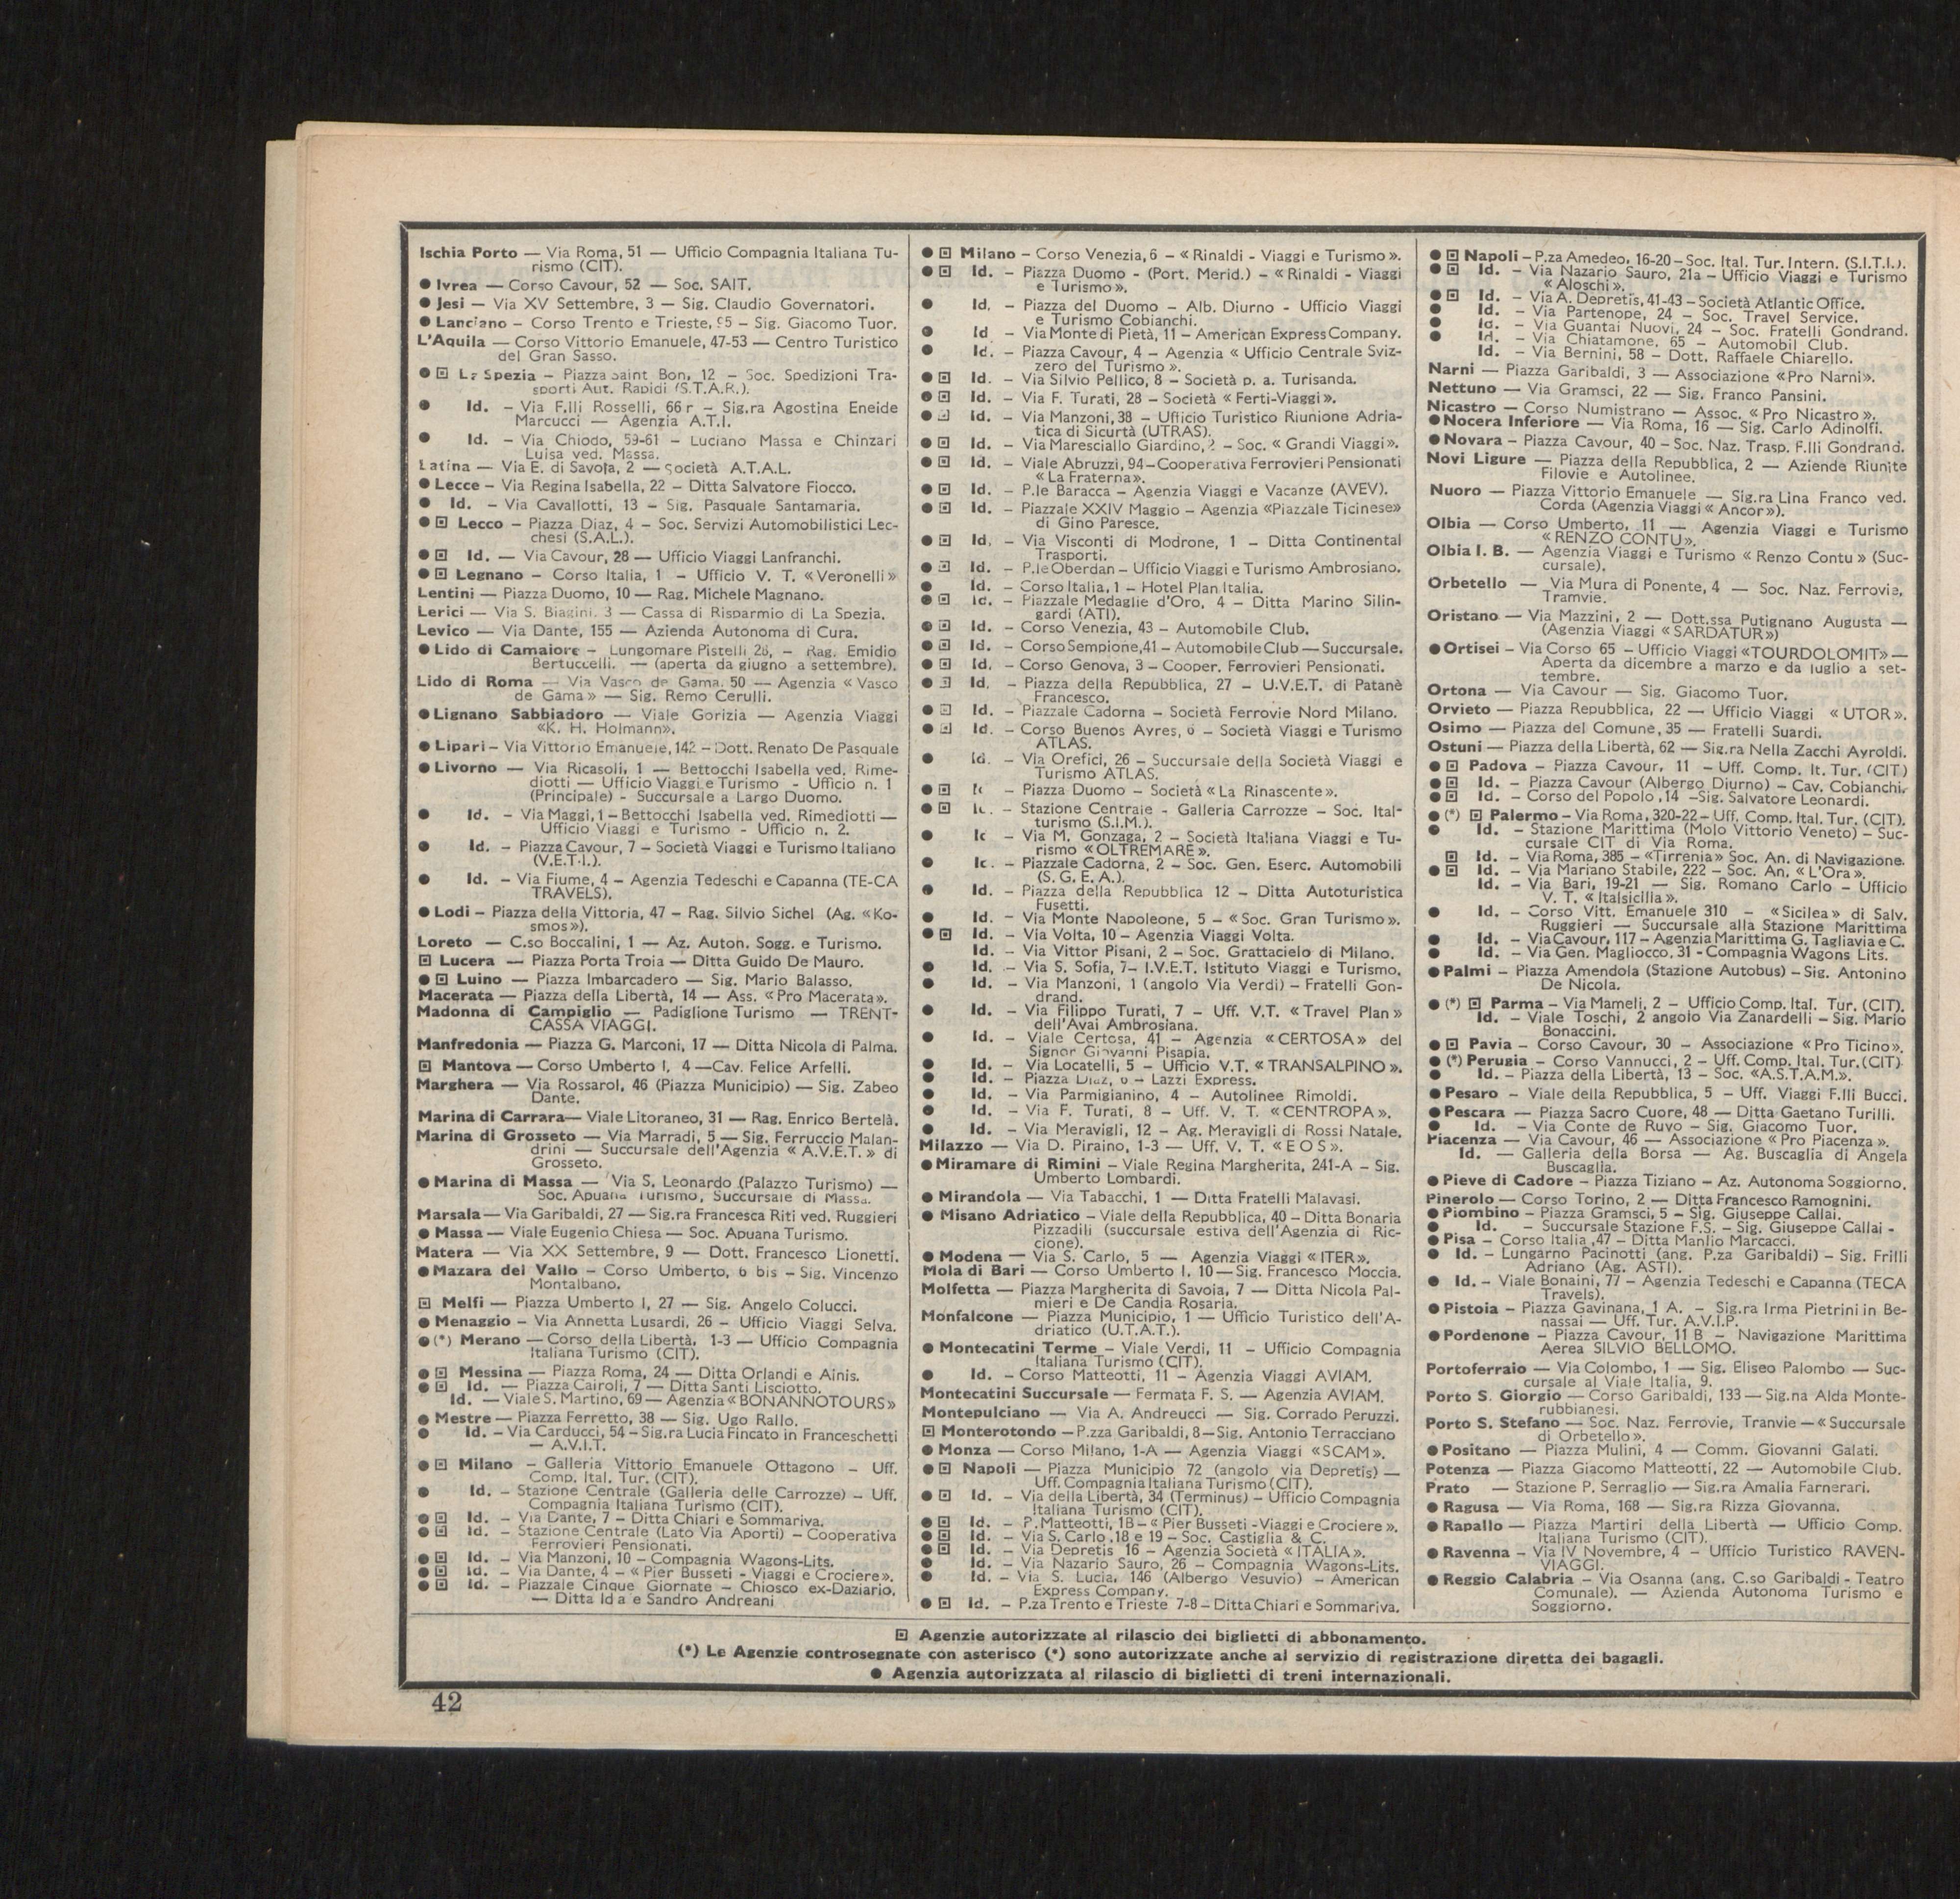 Ischia Porto — Via Roma, 51 — Ufficio Compagnia Italiana Tu-
rismo (CIT).
● Ivrea — Corso Cavour, 52 — Soc. SAIT.
● Jesi — Via XV Settembre, 3 — Sig. Claudio Governatori.
● Lanciano – Corso Trento e Trieste, – Sig. Giacomo Tuor.
L'Aquila — Corso Vittorio Emanuele, 47-53 — Centro Turistico
del Gran Sasso.
● ⊡ La Spezia – Piazza Saint Bon, 12 – Soc. Spedizioni Tra-
sporti Aut. Rapidi (S.T.A.R.).
● Id. – Via F.lli Rosselli, 66 r – Sig.ra Agostina Eneide
Marcucci — Agenzia A.T.I.
● Id. – Via Chiodo, 59-61 – Luciano Massa e Chinzari
Luisa ved. Massa.
Latina — Via E. di Savoia, 2 — Società A.T.A.L.
● Lecce – Via Regina Isabella, 22 – Ditta Salvatore Fiocco.
● Id. – Via Cavallotti, 13 – Sig. Pasquale Santamaria.
● ⊡ Lecco – Piazza Diaz, 4 – Soc. Servizi Automobilistici Lec-
chesi (S.A.L.).
● ⊡ Id. — Via Cavour, 28 — Ufficio Viaggi Lanfranchi.
● ⊡ Legnano – Corso Italia, 1 – Ufficio V. T. «Veronelli»
Lentini — Piazza Duomo, 10 — Rag. Michele Magnano.
Lerici — Via S. Biagini, 3 — Cassa di Risparmio di La Spezia.
Levico — Via Dante, 155 — Azienda Autonoma di Cura.
● Lido di Camaiore – Lungomare Pistelli 26, – Rag. Emidio
Bertuccelli. — (aperta da giugno a settembre).
Lido di Roma — Via Vasco de Gama, 50 — Agenzia « Vasco
de Gama» — Sig. Remo Cerulli.
● Lignano Sabbiadoro — Viale Gorizia — Agenzia Viaggi
«K. H. Holmann».
● Lipari – Via Vittorio Emanuele, 142 – Dott. Renato De Pasquale
● Livorno — Via Ricasoli, 1 — Bettocchi Isabella ved. Rime-
diotti — Ufficio Viaggi e Turismo - Ufficio n. 1
(Principale) - Succursale a Largo Duomo.
● Id. – Via Maggi, 1 – Bettocchi Isabella ved. Rimediotti —
Ufficio Viaggi e Turismo - Ufficio n. 2.
● Id. – Piazza Cavour, 7 – Società Viaggi e Turismo Italiano
(V.E.T.I.).
● Id. – Via Fiume, 4 – Agenzia Tedeschi e Capanna (TE-CA
TRAVELS).
● Lodi – Piazza della Vittoria, 47 – Rag. Silvio Sichel (Ag. «Ko-
smos»).
Loreto — C.so Boccalini, 1 — Az. Auton. Sogg. e Turismo.
⊡ Lucera — Piazza Porta Troia — Ditta Guido De Mauro.
● ⊡ Luino — Piazza Imbarcadero — Sig. Mario Balasso.
Macerata — Piazza della Libertà, 14 — Ass. «Pro Macerata».
Madonna di Campiglio — Padiglione Turismo — TRENT-
CASSA VIAGGI.
Manfredonia — Piazza G. Marconi, 17 — Ditta Nicola di Palma.
⊡ Mantova — Corso Umberto I, 4 —Cav. Felice Arfelli.
Marghera — Via Rossarol, 46 (Piazza Municipio) — Sig. Zabeo
Dante.
Marina di Carrara— Viale Litoraneo, 31 — Rag. Enrico Bertelà.
Marina di Grosseto — Via Marradi, 5 — Sig. Ferruccio Malan-
drini — Succursale dell'Agenzia « A.V.E.T. » di
Grosseto.
● Marina di Massa — Via S. Leonardo (Palazzo Turismo) —
Soc. Apuana Turismo, Succursale di Massa.
Marsala— Via Garibaldi, 27 — Sig.ra Francesca Riti ved. Ruggieri
● Massa — Viale Eugenio Chiesa — Soc. Apuana Turismo.
Matera — Via XX Settembre, 9 — Dott. Francesco Lionetti.
● Mazara del Vallo – Corso Umberto, 6 bis – Sig. Vincenzo
Montalbano.
⊡ Melfi — Piazza Umberto I, 27 — Sig. Angelo Colucci.
● Menaggio – Via Annetta Lusardi, 26 – Ufficio Viaggi Selva.
● (*) Merano — Corso della Libertà, 1-3 — Ufficio Compagnia
Italiana Turismo (CIT).
● ⊡ Messina — Piazza Roma, 24 — Ditta Orlandi e Ainis.
● ⊡ Id. — Piazza Cairoli, 7 — Ditta Santi Lisciotto.
Id. — Viale S. Martino, 69 — Agenzia «BONANNOTOURS»
● Mestre — Piazza Ferretto, 38 — Sig. Ugo Rallo.
● Id. – Via Carducci, 54 – Sig.ra Lucia Fincato in Franceschetti
— A.V.I.T.
● ⊡ Milano – Galleria Vittorio Emanuele Ottagono – Uff.
Comp. Ital. Tur. (CIT).
● Id. – Stazione Centrale (Galleria delle Carrozze) – Uff.
Compagnia Italiana Turismo (CIT).
● ⊡ Id. – Via Dante, 7 – Ditta Chiari e Sommariva.
● ⊡ Id. – Stazione Centrale (Lato Via Aporti) – Cooperativa
Ferrovieri Pensionati.
● ⊡ Id. – Via Manzoni, 10 – Compagnia Wagons-Lits.
● ⊡ Id. – Via Dante, 4 – « Pier Busseti - Viaggi e Crociere».
● ⊡ Id. – Piazzale Cinque Giornate – Chiosco ex-Daziario.
— Ditta Ida e Sandro Andreani
● ⊡ Milano – Corso Venezia, 6 – « Rinaldi - Viaggi e Turismo ».
● ⊡ Id. – Piazza Duomo - (Port. Merid.) – «Rinaldi - Viaggi
e Turismo ».
● Id. – Piazza del Duomo – Alb. Diurno - Ufficio Viaggi
e Turismo Cobianchi.
● Id – Via Monte di Pietà, 11 – American Express Company.
● Id. – Piazza Cavour, 4 – Agenzia « Ufficio Centrale Sviz-
zero del Turismo ».
● ⊡ Id. – Via Silvio Pellico, 8 – Società p. a. Turisanda.
● ⊡ Id. – Via F. Turati, 28 – Società « Ferti-Viaggi».
● ⊡ Id. – Via Manzoni, 38 – Ufficio Turistico Riunione Adria-
tica di Sicurtà (UTRAS).
● ⊡ Id. – Via Maresciallo Giardino, 2 – Soc. « Grandi Viaggi».
● ⊡ Id. – Viale Abruzzi, 94 – Cooperativa Ferrovieri Pensionati
« La Fraterna».
● ⊡ Id. – P.le Baracca – Agenzia Viaggi e Vacanze (AVEV).
● ⊡ Id. – Piazzale XXIV Maggio – Agenzia «Piazzale Ticinese»
di Gino Paresce.
● ⊡ Id. – Via Visconti di Modrone, 1 – Ditta Continental
Trasporti.
● ⊡ Id. – P.le Oberdan – Ufficio Viaggi e Turismo Ambrosiano.
● Id. – Corso Italia, 1 – Hotel Plan Italia.
● ⊡ Id. – Piazzale Medaglie d'Oro, 4 – Ditta Marino Silin-
gardi (ATI).
● ⊡ Id. – Corso Venezia, 43 – Automobile Club.
● ⊡ Id. – Corso Sempione, 41 – Automobile Club — Succursale.
● ⊡ Id. – Corso Genova, 3 – Cooper. Ferrovieri Pensionati.
● ⊡ Id. – Piazza della Repubblica, 27 – U.V.E.T. di Patanè
Francesco.
● ⊡ Id. – Piazzale Cadorna – Società Ferrovie Nord Milano.
● ⊡ Id. – Corso Buenos Ayres, 6 – Società Viaggi e Turismo
ATLAS.
● Id. – Via Orefici, 26 – Succursale della Società Viaggi e
Turismo ATLAS.
● ⊡ Id. – Piazza Duomo – Società « La Rinascente ».
● ⊡ Id. – Stazione Centrale - Galleria Carrozze – Soc. Ital-
turismo (S.I.M.).
● Id. – Via M. Gonzaga, 2 – Società Italiana Viaggi e Tu-
rismo «OLTREMARE ».
● Id. – Piazzale Cadorna, 2 – Soc. Gen. Eserc. Automobili
(S. G. E. A.).
● Id. – Piazza della Repubblica 12 – Ditta Autoturistica
Fusetti.
● Id. – Via Monte Napoleone, 5 – «Soc. Gran Turismo ».
● ⊡ Id. – Via Volta, 10 – Agenzia Viaggi Volta.
Id. – Via Vittor Pisani, 2 – Soc. Grattacielo di Milano.
● Id. – Via S. Sofia, 7– I.V.E.T. Istituto Viaggi e Turismo.
● Id. – Via Manzoni, 1 (angolo Via Verdi) – Fratelli Gon-
drand.
● Id. – Via Filippo Turati, 7 – Uff. V.T. « Travel Plan »
dell'Avai Ambrosiana.
● Id. – Viale Certosa, 41 – Agenzia « CERTOSA » del
Signor Giovanni Pisapia.
● Id. – Via Locatelli, 5 – Ufficio V.T. « TRANSALPINO ».
● Id. – Piazza Diaz, 6 – Lazzi Express.
● Id. – Via Parmigianino, 4 – Autolinee Rimoldi.
● Id. – Via F. Turati, 8 – Uff. V. T. «CENTROPA».
● Id. – Via Meravigli, 12 – Ag. Meravigli di Rossi Natale.
Milazzo — Via D. Piraino, 1-3 — Uff. V. T. «EOS».
● Miramare di Rimini – Viale Regina Margherita, 241-A – Sig.
Umberto Lombardi.
● Mirandola — Via Tabacchi, 1 — Ditta Fratelli Malavasi.
● Misano Adriatico – Viale della Repubblica, 40 – Ditta Bonaria
Pizzadili (succursale estiva dell'Agenzia di Ric-
cione).
● Modena — Via S. Carlo, 5 — Agenzia Viaggi « ITER».
Mola di Bari — Corso Umberto I, 10 — Sig. Francesco Moccia.
Molfetta — Piazza Margherita di Savoia, 7 — Ditta Nicola Pal-
mieri e De Candia Rosaria.
Monfalcone — Piazza Municipio, 1 — Ufficio Turistico dell'A-
driatico (U.T.A.T.).
● Montecatini Terme – Viale Verdi, 11 – Ufficio Compagnia
Italiana Turismo (CIT).
● Id. – Corso Matteotti, 11 – Agenzia Viaggi AVIAM.
Montecatini Succursale — Fermata F. S. — Agenzia AVIAM.
Montepulciano — Via A. Andreucci — Sig. Corrado Peruzzi.
⊡ Monterotondo —P.zza Garibaldi, 8—Sig. Antonio Terracciano
● Monza — Corso Milano, 1-A — Agenzia Viaggi «SCAM».
● ⊡ Napoli — Piazza Municipio 72 (angolo via Depretis) —
Uff. Compagnia Italiana Turismo (CIT).
● ⊡ Id. – Via della Libertà, 34 (Terminus) – Ufficio Compagnia
Italiana Turismo (CIT).
● ⊡ Id. – P. Matteotti, 1B – « Pier Busseti -Viaggi e Crociere ».
● ⊡ Id. – Via S. Carlo ,18 e 19 – Soc. Castiglia & C.
● ⊡ Id. – Via Depretis 16 – Agenzia Società « ITALIA».
● Id. – Via Nazario Sauro, 26 – Compagnia Wagons-Lits.
● Id. – Via S. Lucia, 146 (Albergo Vesuvio) – American
Express Company.
● ⊡ Id. – P.za Trento e Trieste 7-8 – Ditta Chiari e Sommariva.
● ⊡ Napoli – P.za Amedeo, 16-20 – Soc. Ital. Tur. Intern. (S.I.T.I.).
● ⊡ Id. – Via Nazario Sauro, 21a – Ufficio Viaggi e Turismo
« Aloschi ».
● ⊡ Id. – Via A. Depretis, 41-43 – Società Atlantic Office.
● Id. – Via Partenope, 24 – Soc. Travel Service.
● Id. – Via Guantai Nuovi, 24 – Soc. Fratelli Gondrand.
● Id. – Via Chiatamone, 65 – Automobil Club.
Id. – Via Bernini, 58 – Dott. Raffaele Chiarello.
Narni — Piazza Garibaldi, 3 — Associazione «Pro Narni».
Nettuno — Via Gramsci, 22 — Sig. Franco Pansini.
Nicastro — Corso Numistrano — Assoc. « Pro Nicastro ».
● Nocera Inferiore — Via Roma, 16 — Sig. Carlo Adinolfi.
● Novara – Piazza Cavour, 40 – Soc. Naz. Trasp. F.lli Gondrand.
Novi Ligure — Piazza della Repubblica, 2 — Aziende Riunite
Filovie e Autolinee.
Nuoro — Piazza Vittorio Emanuele — Sig.ra Lina Franco ved.
Corda (Agenzia Viaggi « Ancor»).
Olbia — Corso Umberto, 11 — Agenzia Viaggi e Turismo
« RENZO CONTU».
Olbia I. B. — Agenzia Viaggi e Turismo « Renzo Contu » (Suc-
cursale).
Orbetello — Via Mura di Ponente, 4 — Soc. Naz. Ferrovie,
Tramvie.
Oristano — Via Mazzini, 2 — Dott.ssa Putignano Augusta —
(Agenzia Viaggi «SARDATUR»)
● Ortisei – Via Corso 65 – Ufficio Viaggi «TOURDOLOMIT» —
Aperta da dicembre a marzo e da luglio a set-
tembre.
Ortona — Via Cavour — Sig. Giacomo Tuor.
Orvieto — Piazza Repubblica, 22 — Ufficio Viaggi « UTOR».
Osimo — Piazza del Comune, 35 — Fratelli Suardi.
Ostuni — Piazza della Libertà, 62 — Sig.ra Nella Zacchi Ayroldi.
● ⊡ Padova – Piazza Cavour, 11 – Uff. Comp. It. Tur. (CIT)
● ⊡ Id. – Piazza Cavour (Albergo Diurno) – Cav. Cobianchi.
● ⊡ Id. – Corso del Popolo ,14 –Sig. Salvatore Leonardi.
● (*) ⊡ Palermo – Via Roma, 320-22 – Uff. Comp. Ital. Tur. (CIT).
● Id. – Stazione Marittima (Molo Vittorio Veneto) – Suc-
cursale CIT di Via Roma.
⊡ Id. – Via Roma, 385 – «Tirrenia» Soc. An. di Navigazione.
● ⊡ Id. – Via Mariano Stabile, 222 – Soc. An. « L'Ora ».
Id. – Via Bari, 19-21 — Sig. Romano Carlo – Ufficio
V. T. « Italsicilla ».
● Id. – Corso Vitt. Emanuele 310 – «Sicilea» di Salv.
Ruggieri — Succursale alla Stazione Marittima
● Id. – Via Cavour, 117 – Agenzia Marittima G. Tagliavia e C.
● Id. – Via Gen. Magliocco, 31 -Compagnia Wagons Lits.
● Palmi – Piazza Amendola (Stazione Autobus) – Sig. Antonino
De Nicola.
● (*) ⊡ Parma – Via Mameli, 2 – Ufficio Comp. Ital. Tur. (CIT).
Id. – Viale Toschi, 2 angolo Via Zanardelli – Sig. Mario
Bonaccini.
● ⊡ Pavia – Corso Cavour, 30 – Associazione «Pro Ticino».
● (*) Perugia – Corso Vannucci, 2 – Uff. Comp. Ital. Tur. (CIT)
● Id. – Piazza della Libertà, 13 – Soc. «A.S.T.A.M.».
● Pesaro – Viale della Repubblica, 5 – Uff. Viaggi F.lli Bucci.
● Pescara — Piazza Sacro Cuore, 48 — Ditta Gaetano Turilli.
● Id. — Via Conte de Ruvo — Sig. Giacomo Tuor.
Piacenza — Via Cavour, 46 — Associazione « Pro Piacenza ».
Id. — Galleria della Borsa — Ag. Buscaglia di Angela
Buscaglia.
● Pieve di Cadore – Piazza Tiziano – Az. Autonoma Soggiorno.
Pinerolo — Corso Torino, 2 — Ditta Francesco Ramognini.
● Piombino – Piazza Gramsci, 5 – Sig. Giuseppe Callai.
● Id. – Succursale Stazione F.S. – Sig. Giuseppe Callai -
● Pisa – Corso Italia ,47 – Ditta Manlio Marcacci.
● Id. – Lungarno Pacinotti (ang. P.za Garibaldi) – Sig. Frilli
Adriano (Ag. ASTI).
● Id. – Viale Bonaini, 77 – Agenzia Tedeschi e Capanna (TECA
Travels).
● Pistoia – Piazza Gavinana, 1 A. – Sig.ra Irma Pietrini in Be-
nassai — Uff. Tur. A.V.I.P.
● Pordenone – Piazza Cavour, 11 B – Navigazione Marittima
Aerea SILVIO BELLOMO.
Portoferraio — Via Colombo, 1 — Sig. Eliseo Palombo — Suc-
cursale al Viale Italia, 9.
Porto S. Giorgio — Corso Garibaldi, 133 — Sig.na Alda Monte-
rubbianesi.
Porto S. Stefano — Soc. Naz. Ferrovie, Tranvie —«Succursale
di Orbetello».
● Positano — Piazza Mulini, 4 — Comm. Giovanni Galati.
Potenza — Piazza Giacomo Matteotti, 22 — Automobile Club.
Prato — Stazione P. Serraglio — Sig.ra Amalia Farnerari.
● Ragusa — Via Roma, 168 — Sig.ra Rizza Giovanna.
● Rapallo — Piazza Martiri della Libertà — Ufficio Comp.
Italiana Turismo (CIT).
● Ravenna – Via IV Novembre, 4 – Ufficio Turistico RAVEN-
VIAGGI.
● Reggio Calabria – Via Osanna (ang. C.so Garibaldi - Teatro
Comunale). — Azienda Autonoma Turismo e
Soggiorno.
⊡ Agenzie autorizzate al rilascio dei biglietti di abbonamento.
(*) Le Agenzie controsegnate con asterisco (*) sono autorizzate anche al servizio di registrazione diretta dei bagagli.
● Agenzia autorizzata al rilascio di biglietti di treni internazionali.
42